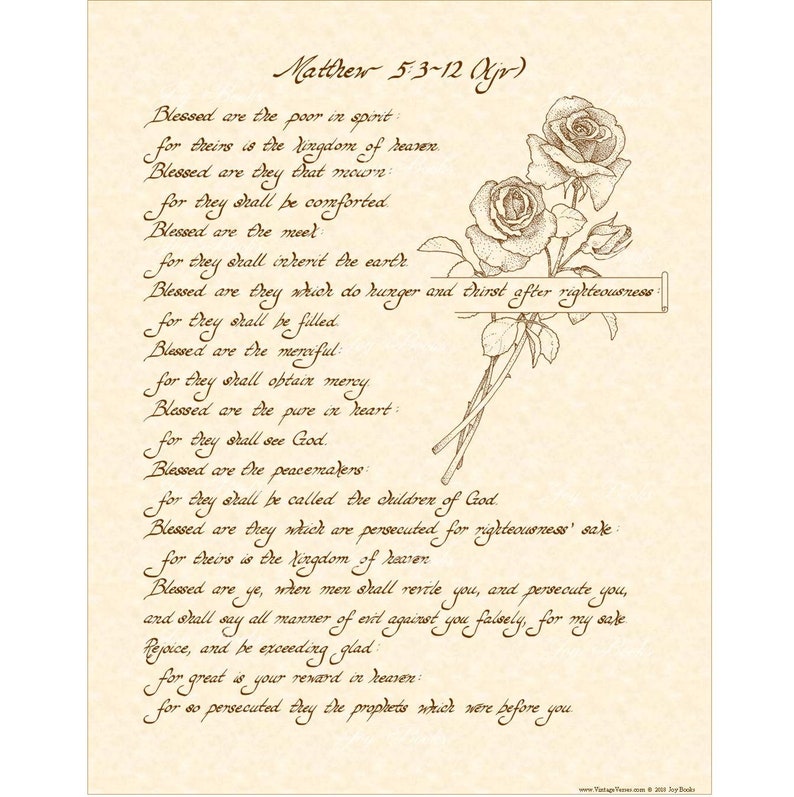 Matthew 5:3~12 (kjv)
Blessed are the poor in spirit:
for theirs is the kingdom of heaven.
Blessed are they that mourn:
for they shall be comforted.
Blessed are the meek:
for they shall inherit the earth.
Blessed are they which do hunger and thirst after righteousness:
for they shall be filled.
Blessed are the merciful:
for they shall obtain mercy.
Blessed are the pure in heart:
for they shall see God.
Blessed are the peacemakers:
for they shall be called the children of God.
Blessed are they which are persecuted for righteousness' sake:
for theirs is the kingdom of heaven.
Blessed are ye, when men shall revile you, and persecute you,
and shall say all manner of evil against you falsely, for my sake.
Rejoice, and be exceeding glad:
for great is your reward in heaven:
for so persecuted they the prophets which were before you.
www.VintageVerses.com © 2018 Joy Books